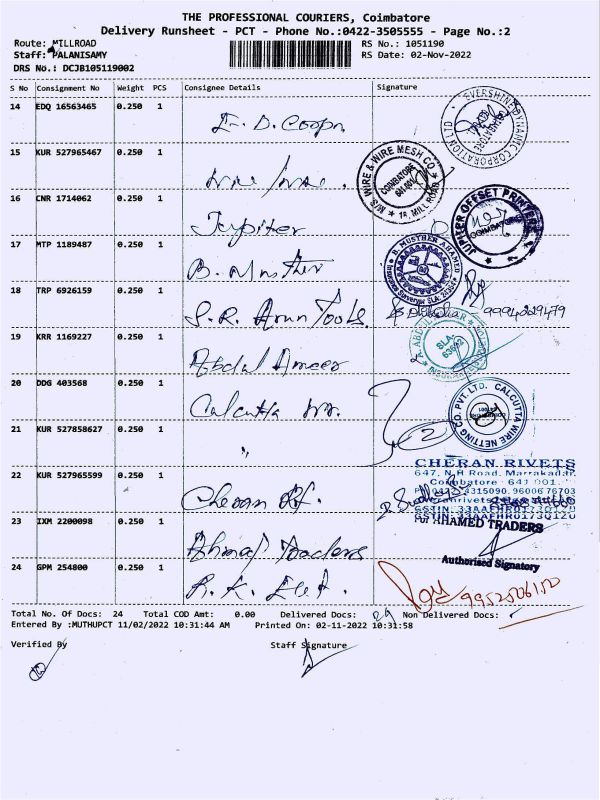 THE PROFESSIONAL COURIERS, Coimbatore
Delivery Runsheet - PCT - Phone No.:0422-3505555 - Page No.:2
Route: MILLROAD RS No.: 1051190
Staff: PALANISAMY RS Date: 02-Nov-2022
DRS No.: DCJB105119002
S No Consignment No Weight PCS Consignee Details Signature
14 EDQ 16563465 0.250 1
E. D. Coopn
EVERSHINE DYNAMIC CORPORATION LTD.
15 KUR 527965467 0.250 1
Wire
M/S. WIRE & WIRE MESH CO
COIMBATORE
641 001
* 15, MILL ROAD *
16 CNR 1714062 0.250 1
Jupiter
JUPITER OFFSET PRINTERS
COIMBATORE
17 MTP 1189487 0.250 1
B. Musther
B. MUSTHER AHAMED
18 TRP 6926159 0.250 1
S. R. Arun Tools.
9994229479
19 KRR 1169227 0.250 1
Abdul Ameer
SLA
63662
20 DDG 403568 0.250 1
Calcutta
CALCUTTA WIRE NETTING CO. PVT. LTD.
21 KUR 527858627 0.250 1
"
22 KUR 527965599 0.250 1
Cheran
CHERAN RIVETS
647, N.H Road, Marrakadai,
Coimbatore - 641 001.
4315090. 9600676703
23 IXM 2200098 0.250 1
Ahmad Traders
For AHAMED TRADERS
Authorised Signatory
24 GPM 254800 0.250 1
R. K. Elet.
9952506150
Total No. Of Docs: 24 Total COD Amt: 0.00 Delivered Docs: 24 Non Delivered Docs:
Entered By :MUTHUPCT 11/02/2022 10:31:44 AM Printed On: 02-11-2022 10:31:58
Verified By Staff Signature